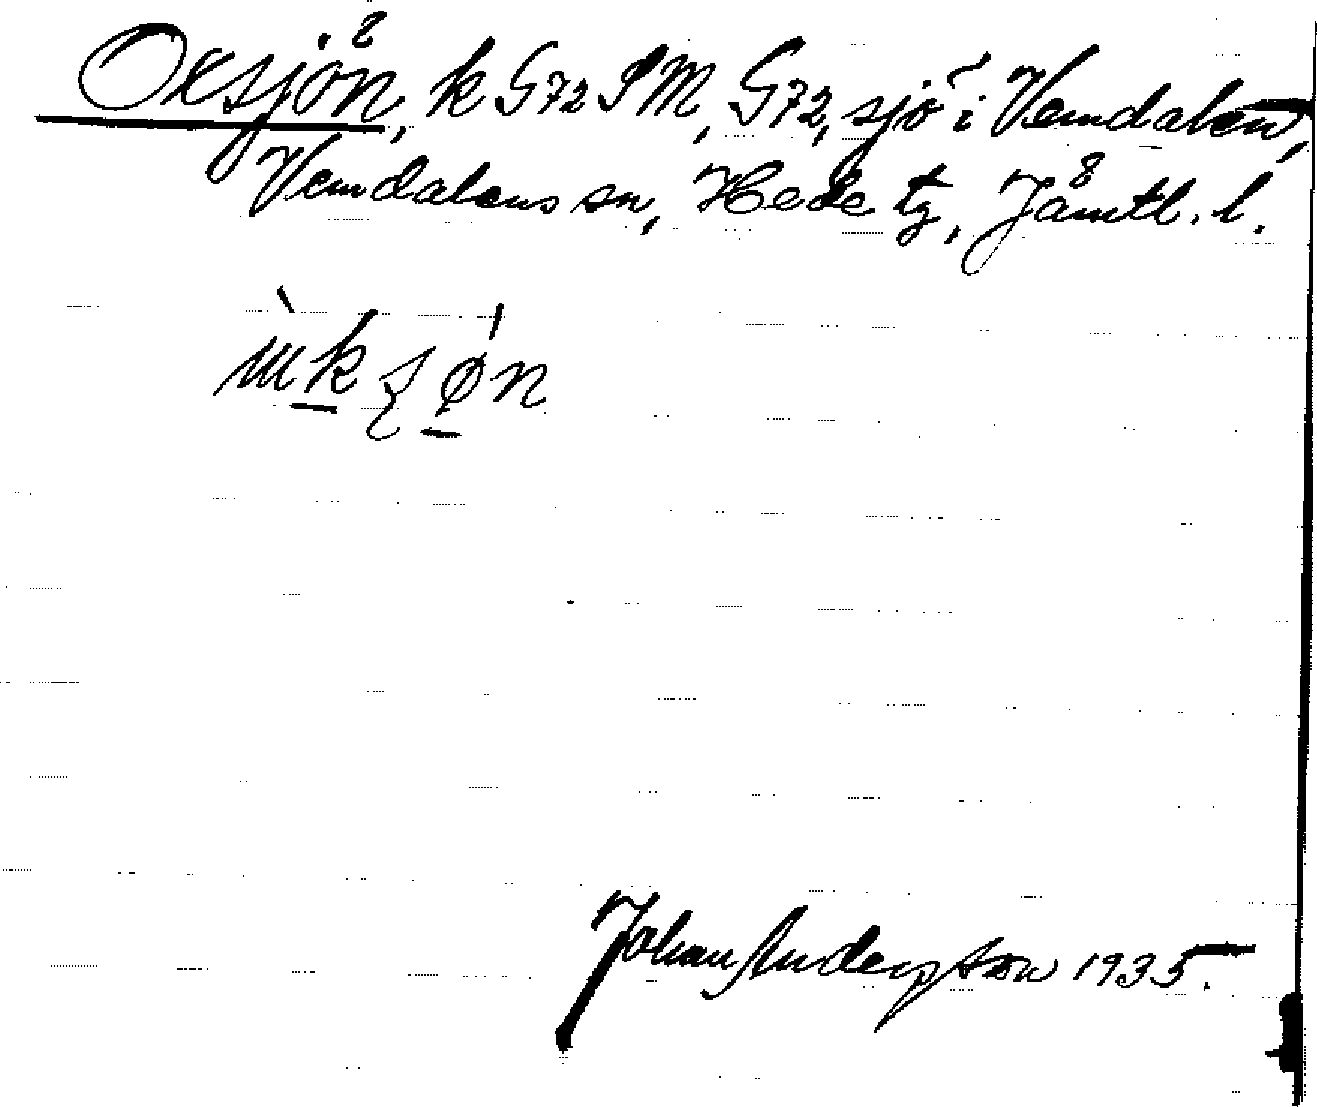 Oxsjön, k G72 SM, G72, sjö i Vemdalen,
Vemdalens sn, Hede tg, Jämtl. l.
Johan Anderson 1935.